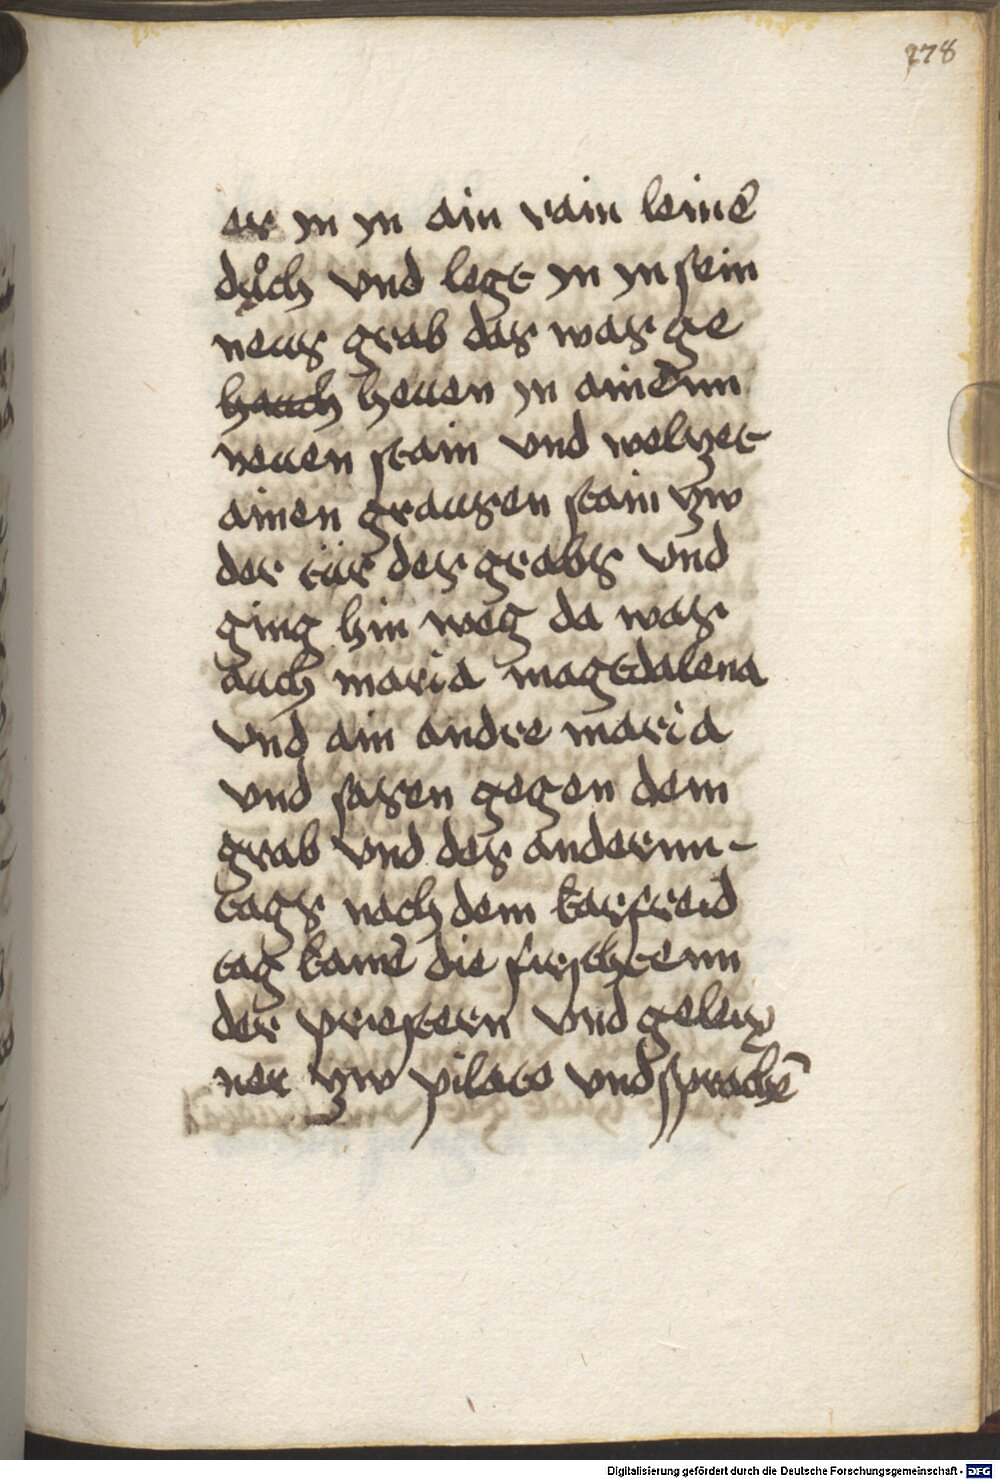 278
er yn yn ain rain leinē
duͦch vnd legt yn yn sein
neus grab das was ge
hauch heuen yn ainemm
neuen stain vnd welyet
ainen grausen stain zw
der tür des grabs vnd
ging hin weg da was
auch maria magtdalena
vnd ain andre maria
vnd sasen gegen dem
grab vnd des andernn
tags nach dem karfreid
tag kamē die firschtenn
der priestern vnd geleix
ner zw pilato vnd sprachē
Digitalisierung gefördert durch die Deutsche Forschungsgemeinschaft - DFG